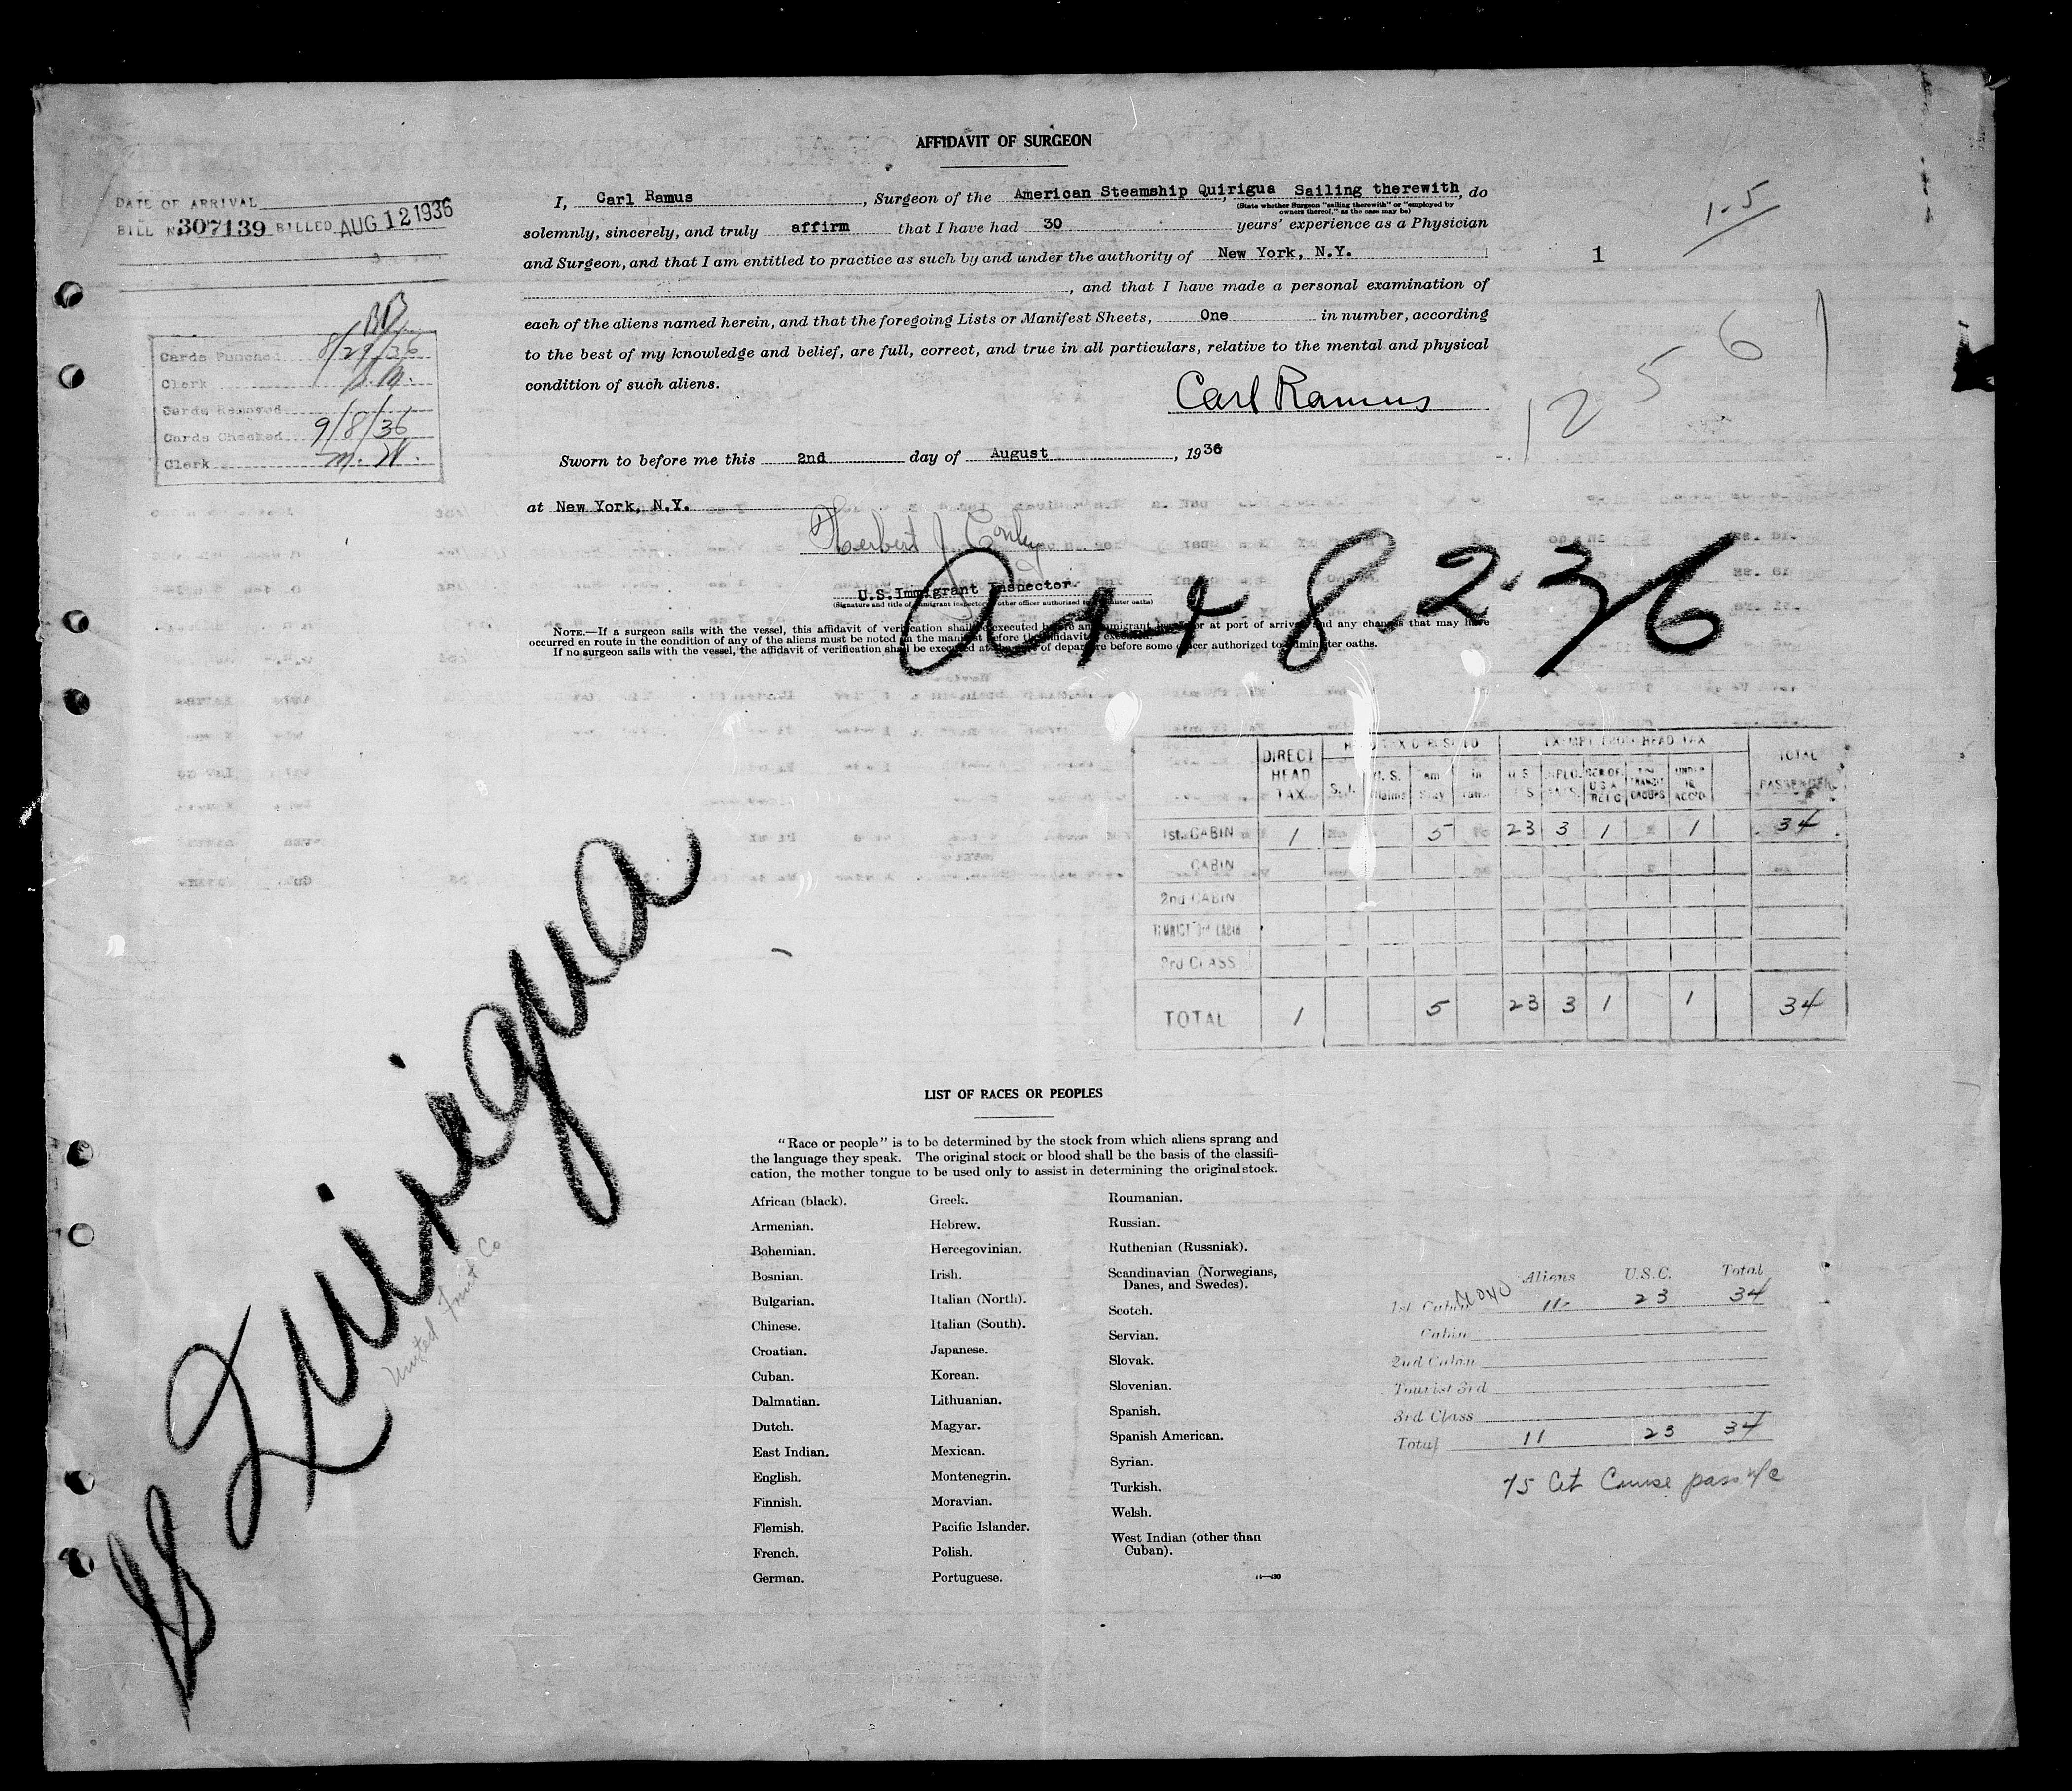 AFFIDAVIT OF SURGEON
DATE OF ARRIVAL
BILL No 307139 BILLED AUG 12 1936
I, Carl Ramus, Surgeon of the American Steamship Quirigua, Sailing therewith, do
(State whether Surgeon "sailing therewith" or "employed by
owners thereof," as the case may be)
solemnly, sincerely, and truly affirm that I have had 30 years' experience as a Physician
and Surgeon, and that I am entitled to practice as such by and under the authority of New York, N.Y.
, and that I have made a personal examination of
each of the aliens named herein, and that the foregoing Lists or Manifest Sheets, One in number, according
to the best of my knowledge and belief, are full, correct, and true in all particulars, relative to the mental and physical
condition of such aliens.
Carl Ramus
Sworn to before me this 2nd day of August, 1936
at New York, N.Y.
Herbert J. Conley
U.S. Immigrant Inspector.
(Signature and title of immigrant inspector or other officer authorized to administer oaths)
NOTE.—If a surgeon sails with the vessel, this affidavit of verification shall be executed before an immigrant inspector at port of arrival and any changes that may have
occurred en route in the condition of any of the aliens must be noted on the manifest before the affidavit is executed.
If no surgeon sails with the vessel, the affidavit of verification shall be executed at the port of departure before some officer authorized to administer oaths.
1-5
1
12561
Cards Punched 8/29/36
Clerk
Cards Removed
Cards Checked 9/8/36
Clerk M. W.
Arr 8.2.36
DIRECT HEAD TAX
HEAD TAX DEPOSITED
EXEMPT FROM HEAD TAX
TOTAL PASSENGERS
1st CABIN 1 5 23 3 1 1 34
CABIN
2nd CABIN
TOURIST 3rd CABIN
3rd CLASS
TOTAL 1 5 23 3 1 1 34
SS Quirigua
United Fruit Co
LIST OF RACES OR PEOPLES
"Race or people" is to be determined by the stock from which aliens sprang and
the language they speak. The original stock or blood shall be the basis of the classifi-
cation, the mother tongue to be used only to assist in determining the original stock.
African (black).
Armenian.
Bohemian.
Bosnian.
Bulgarian.
Chinese.
Croatian.
Cuban.
Dalmatian.
Dutch.
East Indian.
English.
Finnish.
Flemish.
French.
German.
Greek.
Hebrew.
Hercegovinian.
Irish.
Italian (North).
Italian (South).
Japanese.
Korean.
Lithuanian.
Magyar.
Mexican.
Montenegrin.
Moravian.
Pacific Islander.
Polish.
Portuguese.
Roumanian.
Russian.
Ruthenian (Russniak).
Scandinavian (Norwegians,
Danes, and Swedes).
Scotch.
Servian.
Slovak.
Slovenian.
Spanish.
Spanish American.
Syrian.
Turkish.
Welsh.
West Indian (other than
Cuban).
Aliens U.S.C. Total
1st Cabin 11 23 34
Cabin
2nd Cabin
Tourist 3rd
3rd Class
Total 11 23 34
75 Cruise pass